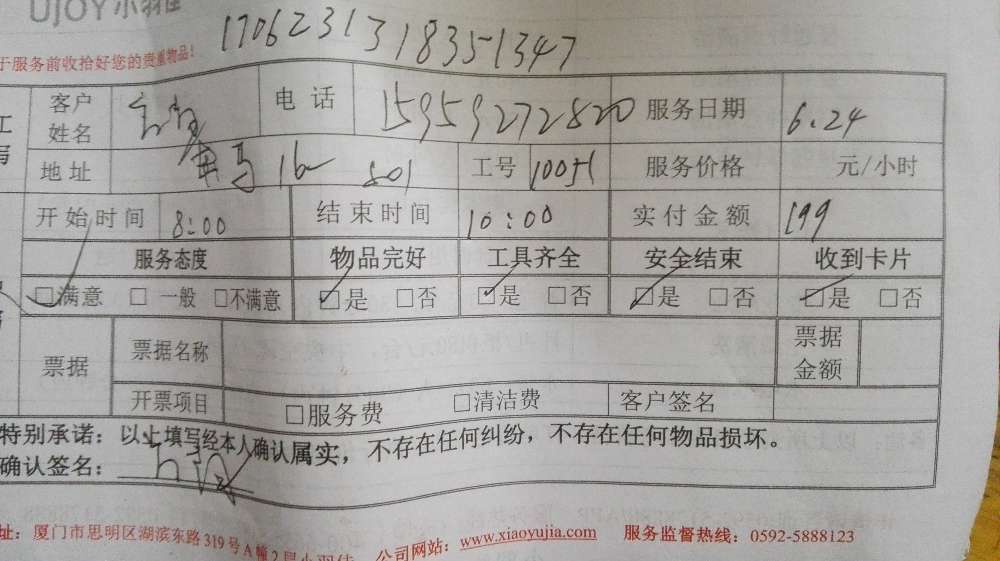 UJOY小羽佳
1706231318351347
于服务前收拾好您的贵重物品!
客户姓名 电话 15959272820 服务日期 6.24
地址 16 801 工号 10051 服务价格 元/小时
开始时间 8:00 结束时间 10:00 实付金额 199
服务态度 物品完好 工具齐全 安全结束 收到卡片
□满意 □一般 □不满意 □是 □否 □是 □否 □是 □否 □是 □否
票据 票据名称 票据金额
开票项目 □服务费 □清洁费 客户签名
特别承诺：以上填写经本人确认属实，不存在任何纠纷，不存在任何物品损坏。
确认签名：
址：厦门市思明区湖滨东路319号A幢2层小羽佳 公司网站：www.xiaoyujia.com 服务监督热线：0592-5888123